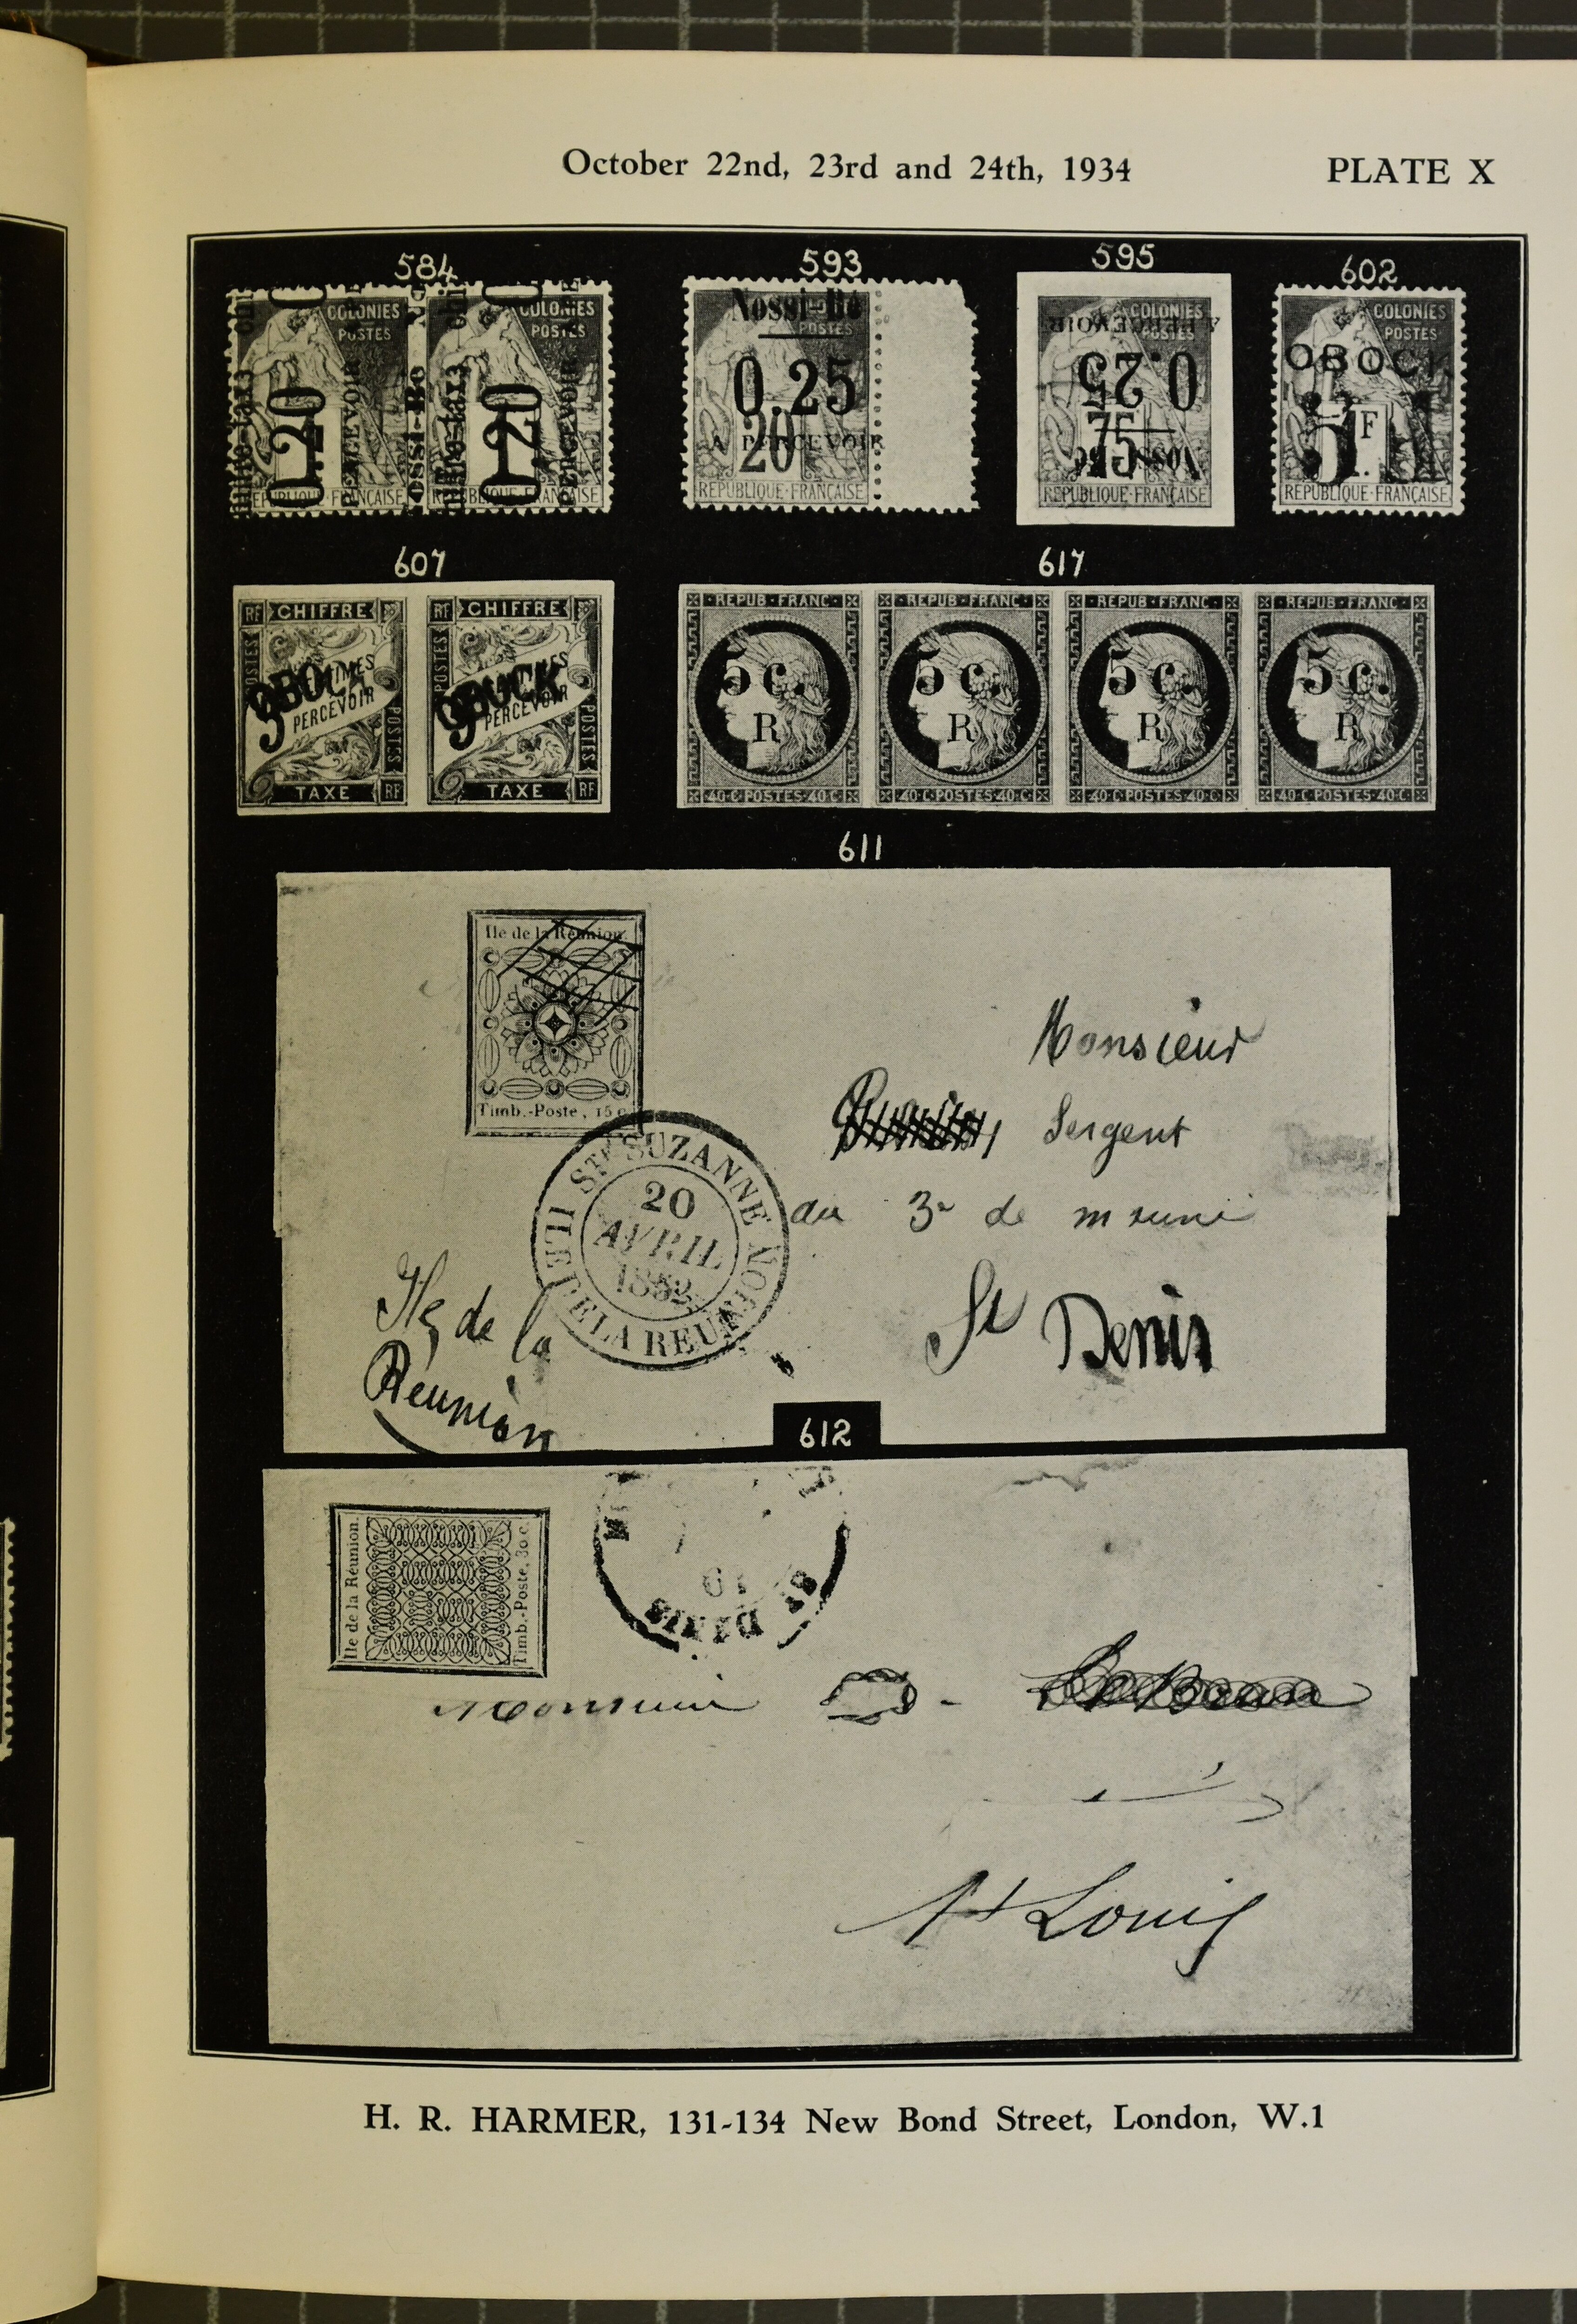 October 22nd, 23rd and 24th, 1934
PLATE X
584
593
595
602
COLONIES
POSTES
0.20
PERCEVOIR
Nossi-Bé
COLONIES
POSTES
0.20
PERCEVOIR
RÉPUBLIQUE FRANÇAISE
RÉPUBLIQUE FRANÇAISE
Nossi-Bé
POSTES
0.25
20
A PERCEVOIR
RÉPUBLIQUE FRANÇAISE
COLONIES
POSTES
A PERCEVOIR
0.25
75
Nossi-Bé
RÉPUBLIQUE FRANÇAISE
COLONIES
POSTES
OBOCK
5 F
RÉPUBLIQUE FRANÇAISE
607
617
RF CHIFFRE
POSTES
OBOCK
PERCEVOIR
POSTES
TAXE RF
RF CHIFFRE
POSTES
OBOCK
PERCEVOIR
POSTES
TAXE RF
REPUB·FRANC·
5 c.
R
40·C·POSTES·40·C
REPUB·FRANC·
5 c.
R
40·C·POSTES·40·C
REPUB·FRANC·
5 c.
R
40·C·POSTES·40·C
REPUB·FRANC·
5 c.
R
40·C·POSTES·40·C
611
Ile de la Réunion.
Timb.-Poste, 15 c
STE SUZANNE
20
AVRIL
1852
ILE DE LA REUNION
Monsieur
Sergent
au 3e de
St Denis
Ile de la
Réunion
612
Ile de la Réunion.
Timb.-Poste, 30 c.
ST DENIS
Monsieur
St Louis
H. R. HARMER, 131-134 New Bond Street, London, W.1